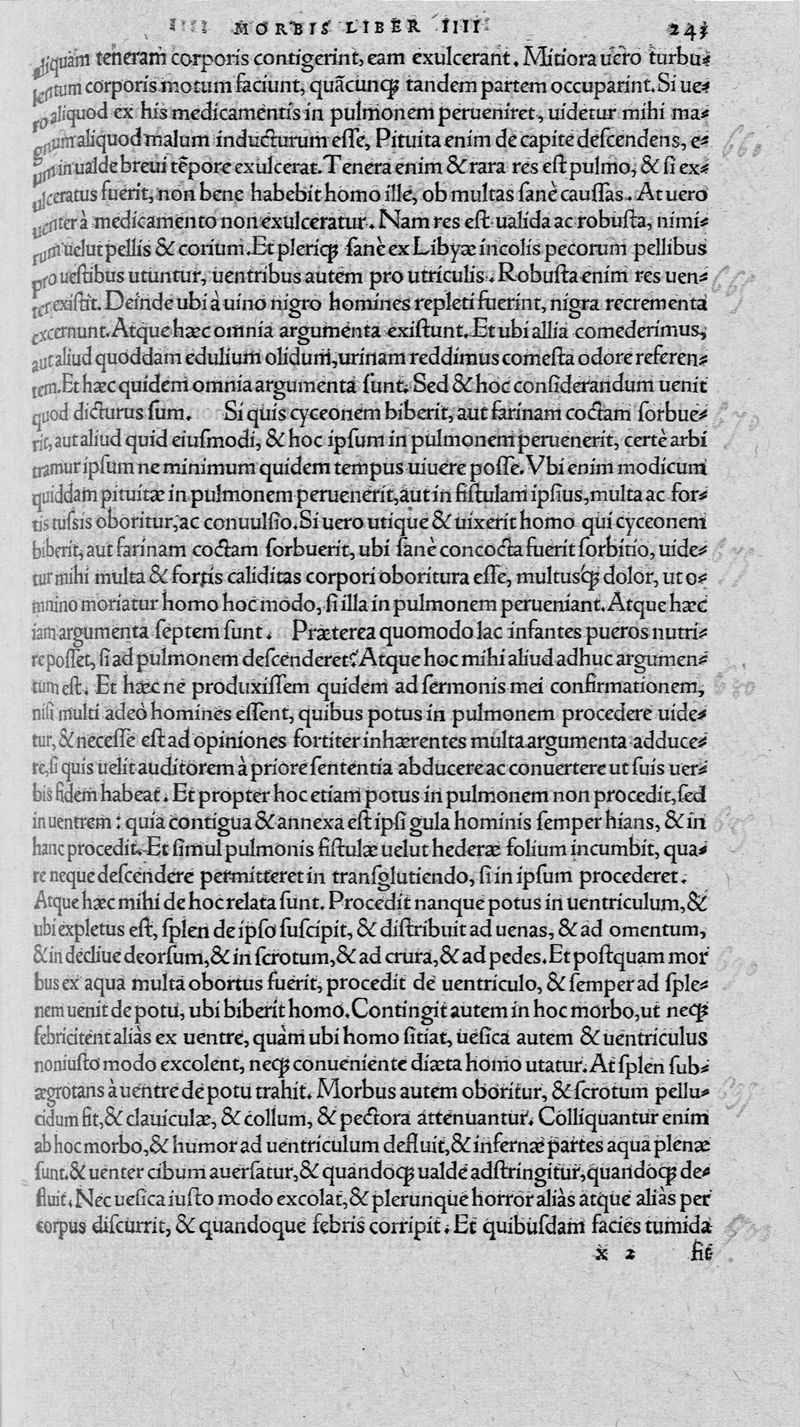 MORBIS LIBER IIII. 243
aliquam teneram corporis contigerint, eam exulcerant. Mitiora uero turbu⸗
lentum corporis motum faciunt, quãcunq; tandem partem occuparint. Si ue⸗
ro aliquod ex his medicamentis in pulmonem perueniret, uidetur mihi ma⸗
gnum aliquod malum inducturum esse, Pituita enim de capite descendens, e⸗
tiam in ualde breui tẽpore exulcerat. Tenera enim & rara res est pulmo, & si ex⸗
ulceratus fuerit, non bene habebit homo ille, ob multas sanè caussas. At uero
uenter à medicamento non exulceratur. Nam res est ualida ac robusta, nimi⸗
rum uelut pellis & corium. Et pleriq; sanè ex Libyæ incolis pecorum pellibus
pro uestibus utuntur, uentribus autem pro utriculis. Robusta enim res uen⸗
ter existit. Deinde ubi à uino nigro homines repleti fuerint, nigra recrementa
excernunt. Atque hæc omnia argumenta existunt. Et ubi allia comederimus,
aut aliud quoddam edulium olidum, urinam reddimus comesta odore referen⸗
tem. Et hæc quidem omnia argumenta sunt. Sed & hoc considerandum uenit
quod dicturus sum. Si quis cyceonem biberit, aut farinam coctam sorbue⸗
rit, aut aliud quid eiusmodi, & hoc ipsum in pulmonem peruenerit, certè arbi
tramur ipsum ne minimum quidem tempus uiuere posse. Vbi enim modicum
quiddam pituitæ in pulmonem peruenerit, aut in fistulam ipsius, multa ac for⸗
tis tussis oboritur, ac conuulsio. Si uero utique & uixerit homo qui cyceonem
biberit, aut farinam coctam sorbuerit, ubi sanè concocta fuerit sorbitio, uide⸗
tur mihi multa & fortis caliditas corpori oboritura esse, multusq; dolor, ut o⸗
mnino moriatur homo hoc modo, si illa in pulmonem perueniant. Atque hæc
iam argumenta septem sunt. Præterea quomodo lac infantes pueros nutri⸗
re posset, si ad pulmonem descenderet? Atque hoc mihi aliud adhuc argumen⸗
tum est. Et hæc ne produxissem quidem ad sermonis mei confirmationem,
nisi multi adeò homines essent, quibus potus in pulmonem procedere uide⸗
tur, & necesse est ad opiniones fortiter inhærentes multa argumenta adduce⸗
re, si quis uelit auditorem à priore sententia abducere ac conuertere ut suis uer⸗
bis fidem habeat. Et propter hoc etiam potus in pulmonem non procedit, sed
in uentrem: quia contigua & annexa est ipsi gula hominis semper hians, & in
hanc procedit. Et simul pulmonis fistulæ uelut hederæ folium incumbit, qua⸗
re neque descendere permitteret in transglutiendo, si in ipsum procederet.
Atque hæc mihi de hoc relata sunt. Procedit nanque potus in uentriculum, &
ubi expletus est, splen de ipso suscipit, & distribuit ad uenas, & ad omentum,
& in decliue deorsum, & in scrotum, & ad crura, & ad pedes. Et postquam mor
bus ex aqua multa obortus fuerit, procedit de uentriculo, & semper ad sple⸗
nem uenit de potu, ubi biberit homo. Contingit autem in hoc morbo, ut neq;
febricitent aliàs ex uentre, quàm ubi homo sitiat, uesica autem & uentriculus
non iusto modo excolent, neq; conueniente diæta homo utatur. At splen sub⸗
ægrotans à uentre de potu trahit. Morbus autem oboritur, & scrotum pellu⸗
cidum fit, & clauiculæ, & collum, & pectora attenuantur. Colliquantur enim
ab hoc morbo, & humor ad uentriculum defluit, & infernæ partes aqua plenæ
sunt. & uenter cibum auersatur, & quandoq; ualde adstringitur, quandoq; de⸗
fluit. Nec uesica iusto modo excolat, & plerunque horror aliàs atque aliàs per
corpus discurrit, & quandoque febris corripit. Et quibusdam facies tumida
x 2 fit